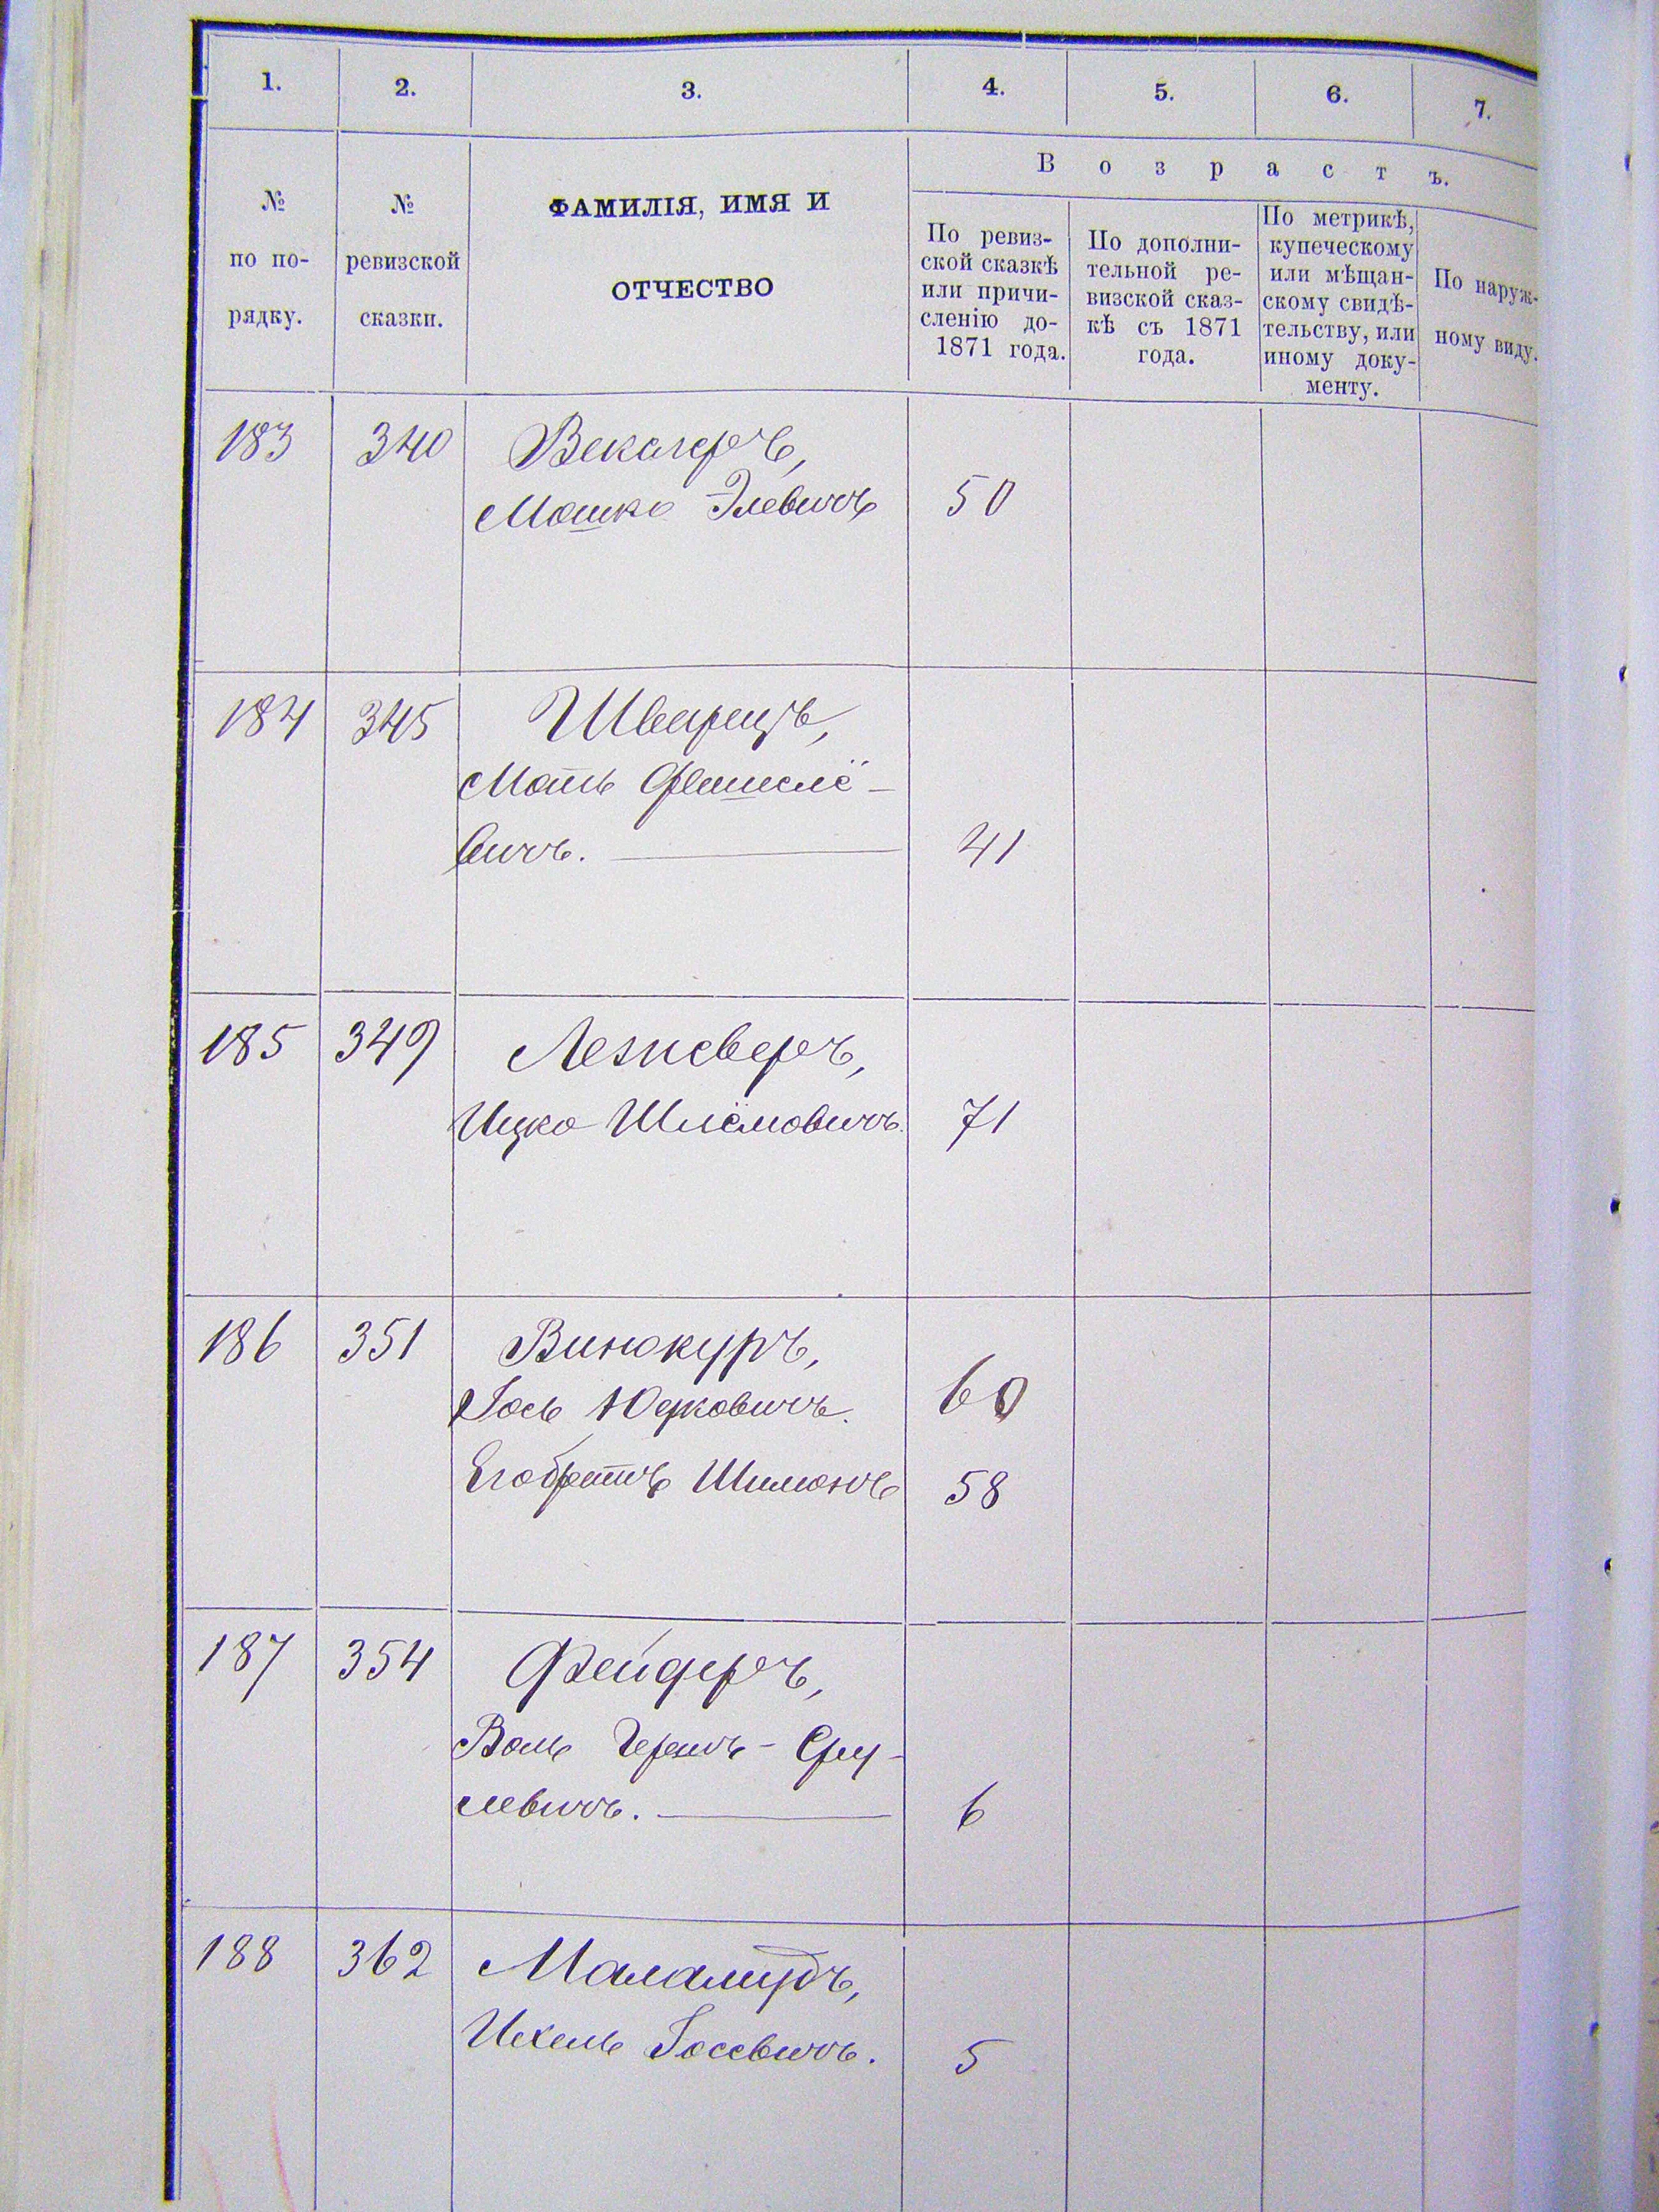 1. 2. 3. 4. 5. 6. 7.
В о з р а с т ъ.
№ по по-рядку.
№ ревизской сказки.
ФАМИЛІЯ, ИМЯ И
ОТЧЕСТВО
По ревиз-
ской сказкѣ
или причи-
сленію до-
1871 года.
По дополни-
тельной ре-
визской сказ-
кѣ съ 1871
года.
По метрикѣ,
купеческому
или мѣщан-
скому свидѣ-
тельству, или
иному доку-
менту.
По наруж-
ному виду.
183 340 Векслеръ,
Мошко Элевичъ 50
184 345 Шварецъ,
Моть Фешилё-
вичъ. 41
185 349 Лезневеръ,
Ицко Шлёмовичъ. 71
186 351 Винокуръ,
Іось Юдковичъ. 60
Его братъ Шимонъ 58
187 354 Фейдеръ,
Воль Гершъ-Сру-
левичъ. 6
188 362 Маламудъ,
Ихель Іосевичъ. 5